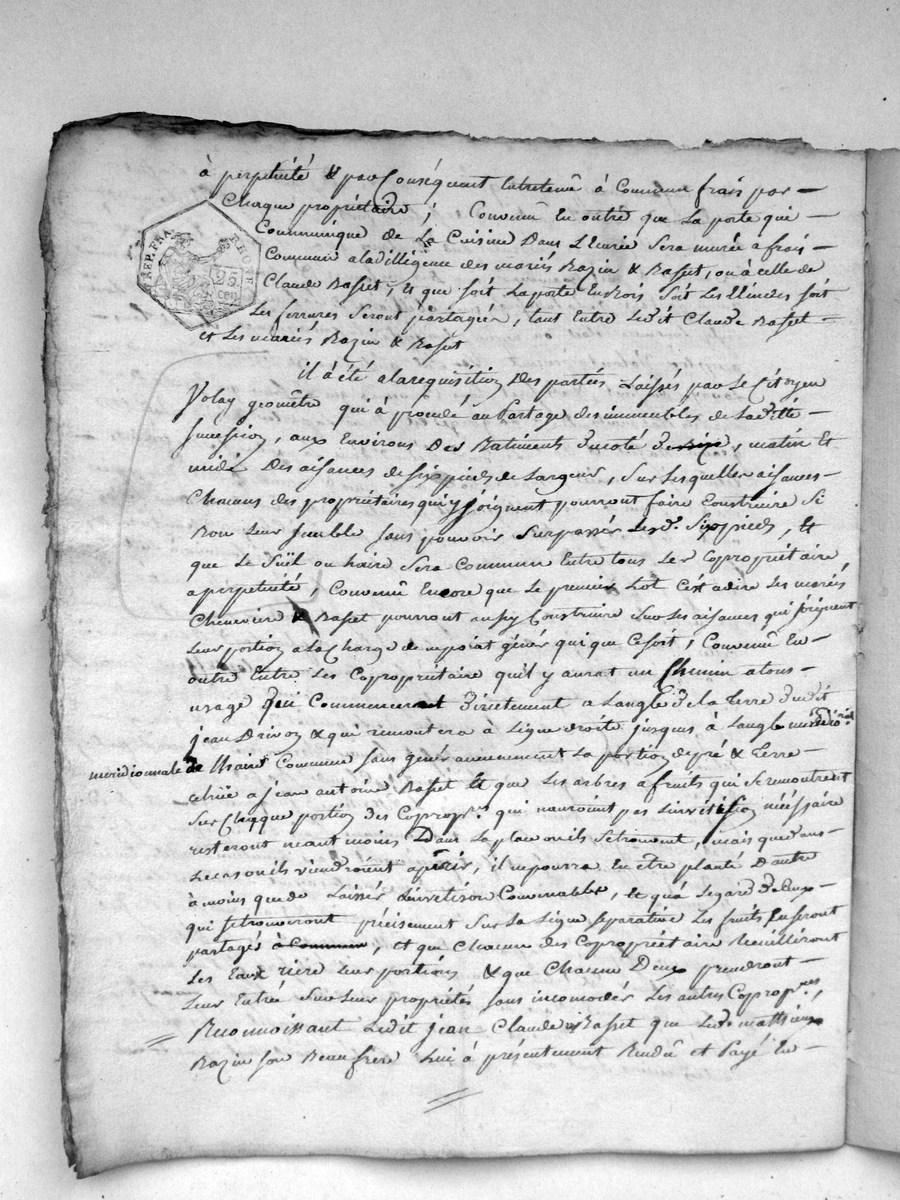 à perpetuité & par Conséquent Entretenû à Commun frais par
Chaque propriétaire ; Convenû En outré que la porte qui
Communique de La Cuisine Dans L'Ecurie Sera murée a frais
Commun a la dilligence des mariés Bazin & Basset, ou à celle de
Claude Basset, & que soit La porte En Bois Soit Les soit
Les ferrures Seront partagées, tant Entre Ledit Claude Basset
et Les mariés Bazin & Basset
REP. FRA.
25
CEN
il à été a la requisition Des parties Laissés par Le Citoyen
Volay geomêtre qui à procedé au Partage des immeubles de La ditte
Succession, aux Environs Des Batiments du coté de matin Et
midi Des aisances de six pieds de Largeur, Sur Lesquelles aisances
Chacuns des propriétaires qui y joignent pourront faire Construire Si
Bon Leur Semble Sans pouvoir Surpasser Lesd. Six pieds, Et
que Le Süel ou haire Sera Commun Entre tous Les Copropriétaire
a perpetuité, Convenû Encore que Le premier Lot C'est a dire Les mariés
& Basset pourront aussy Construire Sur Les aisances qui joignent
Leur portion a La Charge de ne point génér qui que Ce soit ; Convenû En
outre Entre Les Copropriétaire qu'il y aurat un Chemin a tous
usage qui Commencerat Directement a L'angle de la terre dudit
jean Drivon & qui remontera à Ligne droite jusques à L'angle
meridionnale de Commun Sans génér La portion de pré & terre
echüe a jean antoine Basset & que Les arbres a fruits qui Se rencontreront
Sur Chaque portion des Coproprs. qui nauroint pas L'invétison nécéssaire
resteront neant moins Dans La place ou ils Se trouvent, mais que dans
Le cas ou ils viendroient à périr, il ne pourra En être planté D'autre
à moins que de Laisser L'invetison Convenable, & qu'à Legard de Ceux
qui Se trouveront précisement Sur La Ligne Séparative Les fruits En Seront
partagés à Commun, et que Chacun des Copropriétaire
Les Eaux rière Leur portions & que Chacun D'eux prendront
Leur Entrée Sur Leur propriétés Sans incomoder Les autres Coproprres,
Reconnoissant Ledit jean Claude Basset que Led. mathieux
Bazin Son Beau frère Lui à présentement Rendû et Payé En